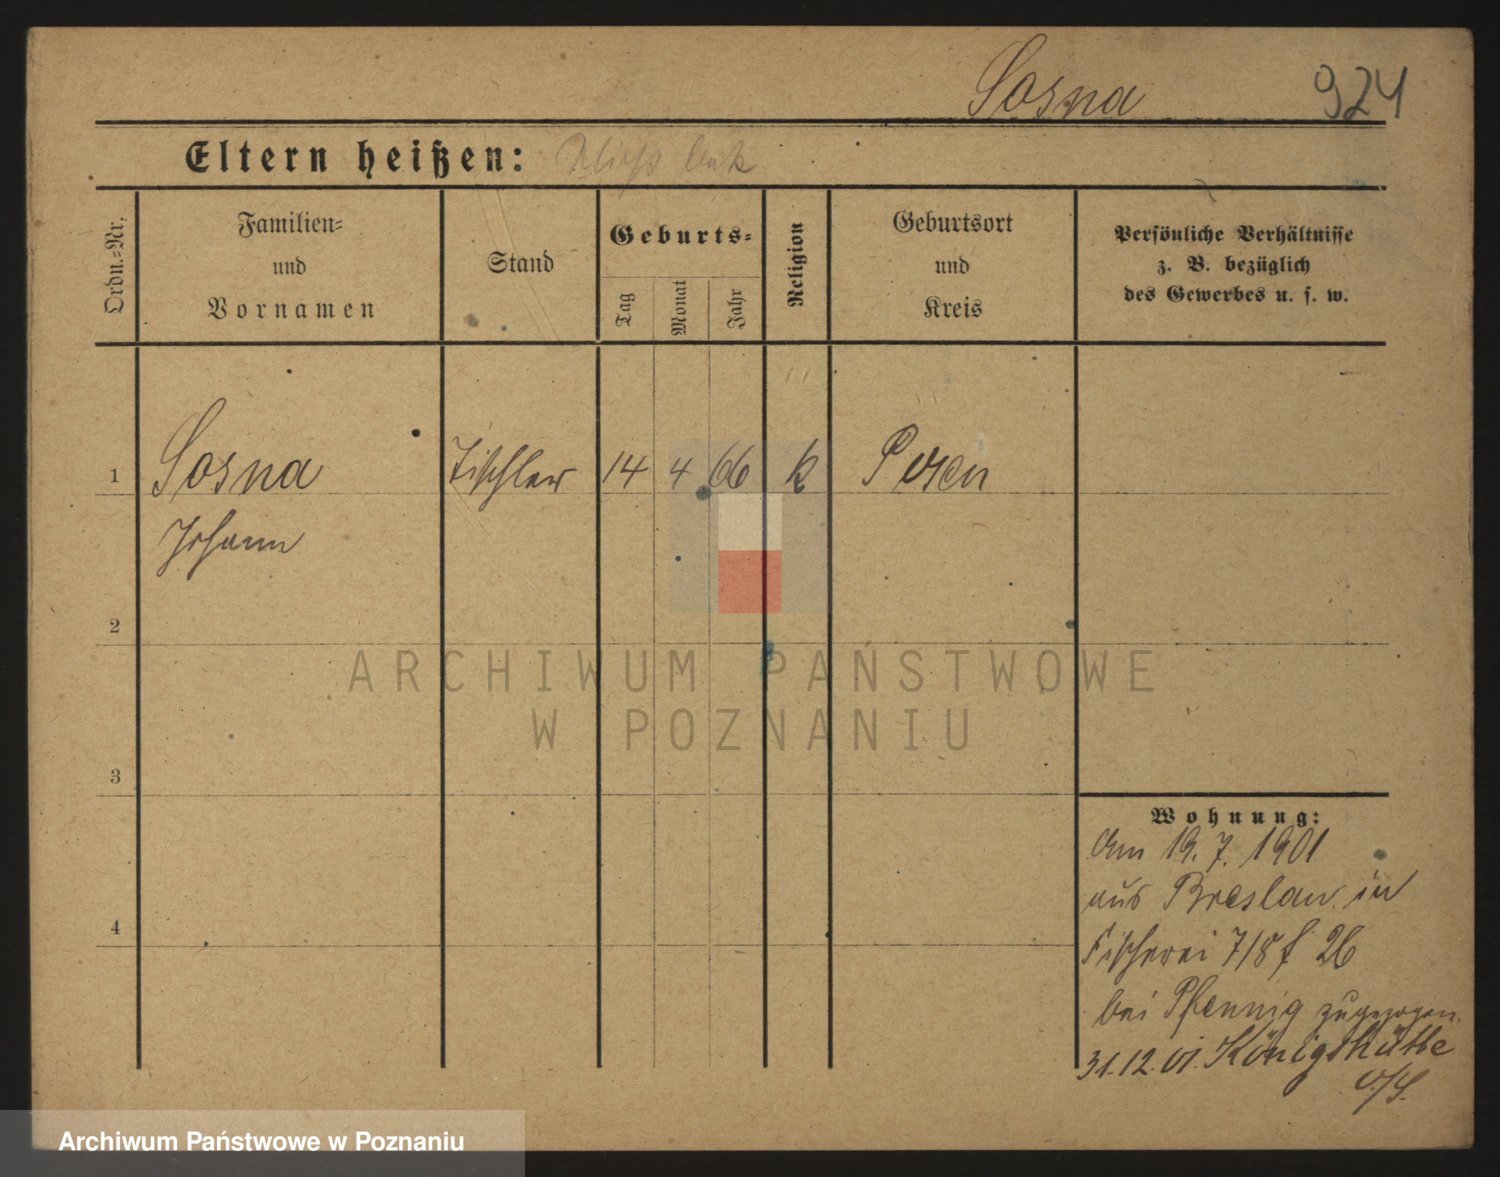 Sosna 924
Eltern heißen:
Ordn.-Nr.
Familien-
und
Vornamen
Stand
Geburts-
Tag
Monat
Jahr
Religion
Geburtsort
und
Kreis
Persönliche Verhältnisse
z. B. bezüglich
des Gewerbes u. s. w.
1 Sosna Tischler 14 4 66 k Posen
Johann
2
ARCHIWUM PAŃSTWOWE
W POZNANIU
3
Wohnung:
Am 19. 7. 1901
aus Breslau in
4
Fischerei 7/8 f 26
bei Pfennig zugezogen.
31.12.01. Königshütte
O/S.
Archiwum Państwowe w Poznaniu